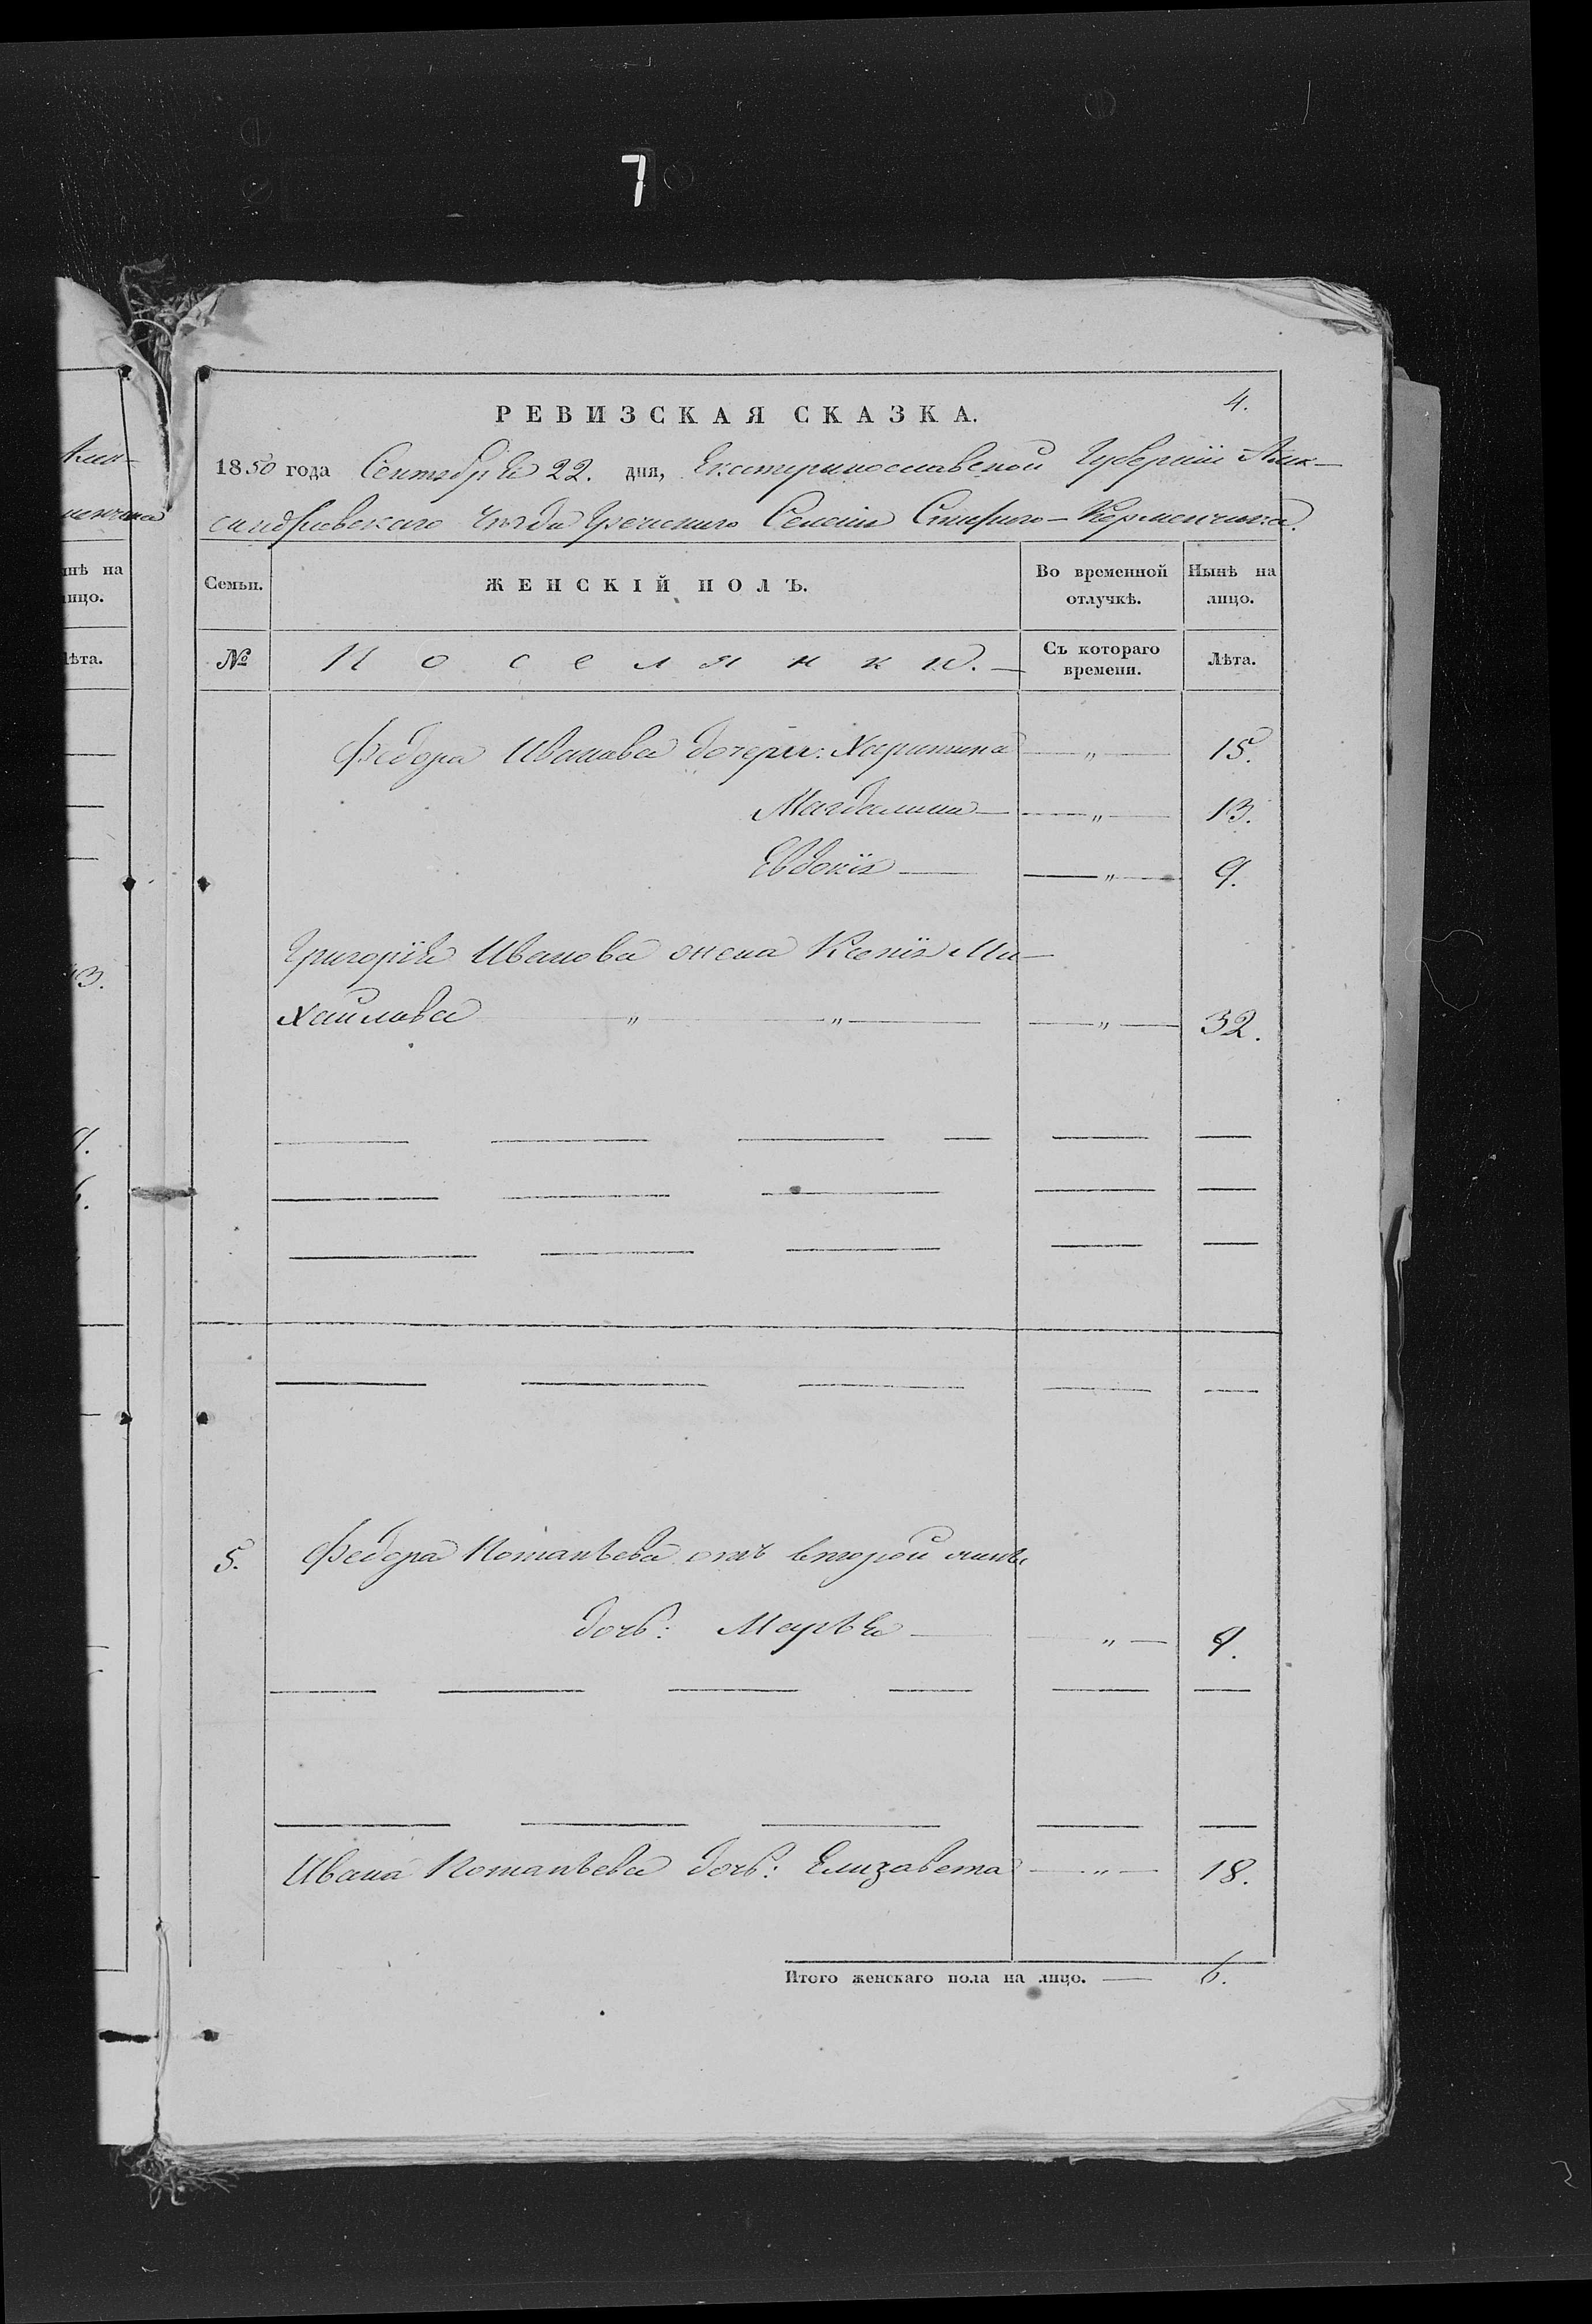 7
4.
РЕВИЗСКАЯ СКАЗКА.
1850 года Сентября 22. дня, Екатеринославской Губернии Алек-
сандровскаго Уѣзда Греческаго Селенія Стараго-Керменчика.
нѣ на
лицо.
лѣта.
Семьи.
ЖЕНСКІЙ ПОЛЪ.
Во временной
отлучкѣ.
Нынѣ на
лицо.
№
Поселянки.
Съ котораго
времени.
Лѣта.
Федора Иванова дочери: Харитина — „ — 15.
Магдалина — „ — 13.
Евдокія — „ — 9.
Григорія Иванова жена Ксенія Ми-
хайлова — „ — „ — „ — 32.
5. Федора Потапьева отъ второй жены
дочь: Марья — „ — 9.
Ивана Потапьева дочь: Елизавета — „ — 18.
Итого женскаго пола на лицо. — 6.